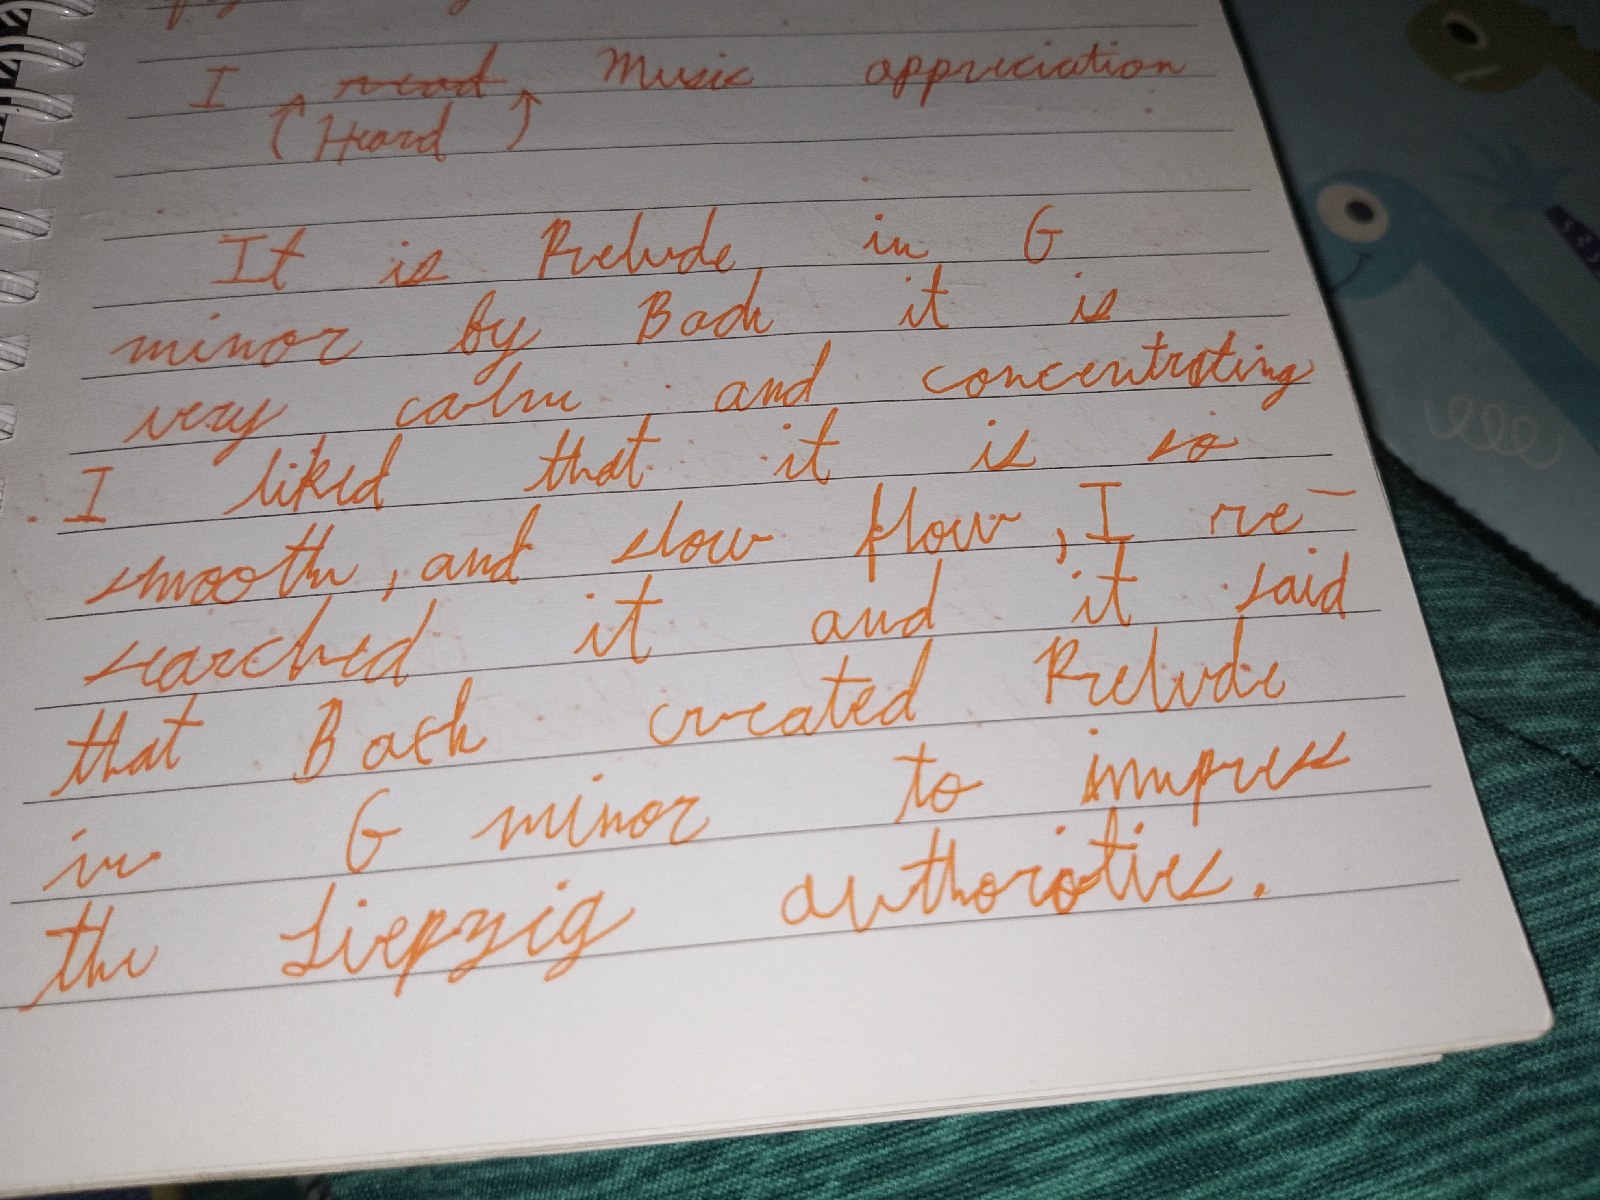 I read Music appreciation
(Heard)
It is Prelude in G
minor by Bach it is
very calm and concentrating
I liked that it is so
smooth, and slow flow, I re-
searched it and it said
that Bach created Prelude
in G minor to impress
the Liepzig authoroties.